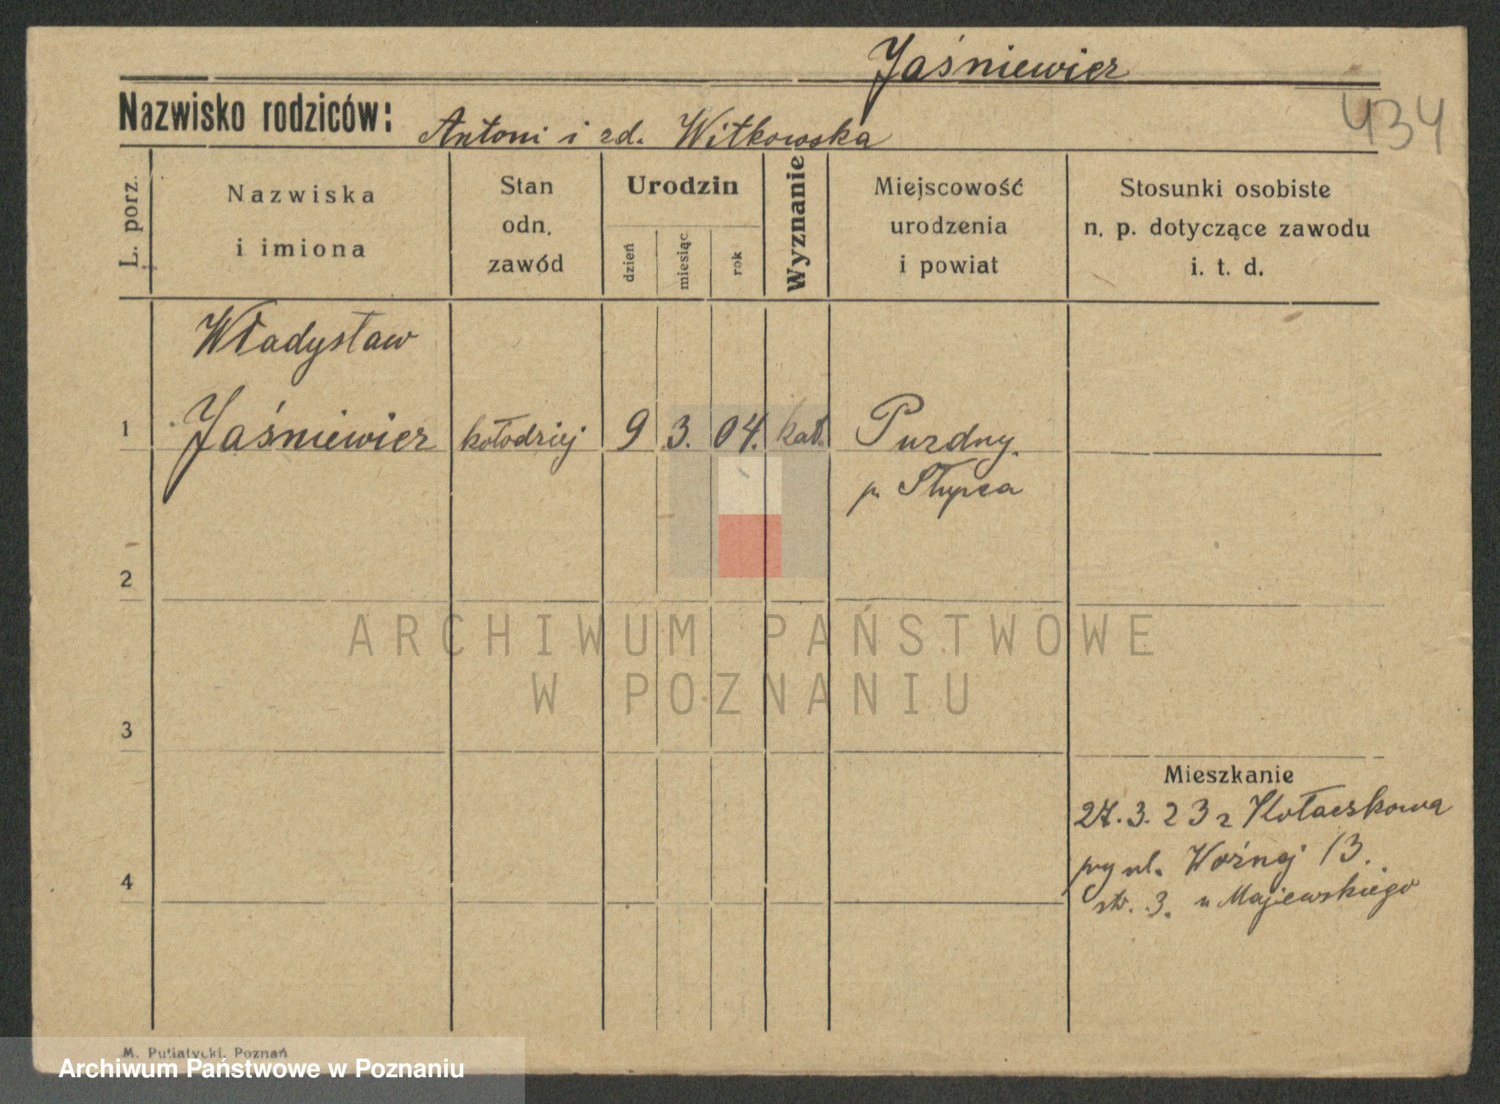 Jaśniewicz
Nazwisko rodziców: Antoni i zd. Witkowska
434
L. porz.
Nazwiska
i imiona
Stan
odn.
zawód
Urodzin
dzień
miesiąc
rok
Wyznanie
Miejscowość
urodzenia
i powiat
Stosunki osobiste
n. p. dotyczące zawodu
i. t. d.
Władysław
1 Jaśniewicz kołodziej 9 3. 04. kat. Purdny.
p. Słupca
2
3
4
Mieszkanie
27.3.23 z Kołaczkowa
przy ul. Woźnej 13.
str. 3. u Majewskiego
ARCHIWUM PAŃSTWOWE
W POZNANIU
M. Putiatycki, Poznań
Archiwum Państwowe w Poznaniu